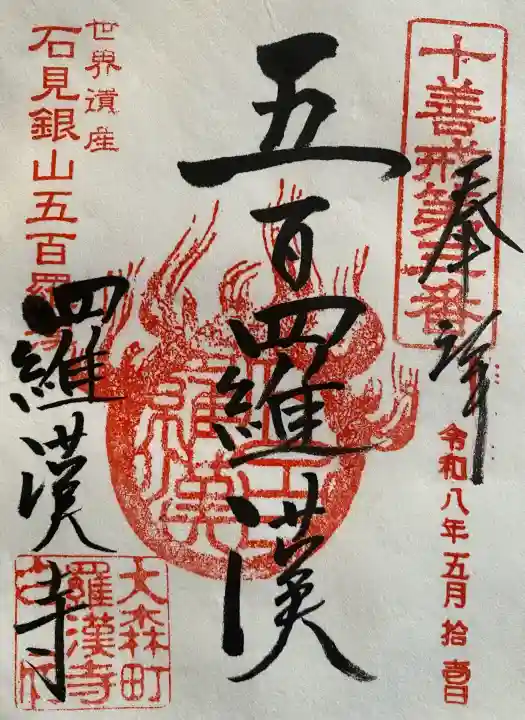 十善戒第三番
奉拝
令和八年五月拾壹日
五百羅漢
世界遺産
石見銀山五百羅漢
羅漢寺
大森町
羅漢寺